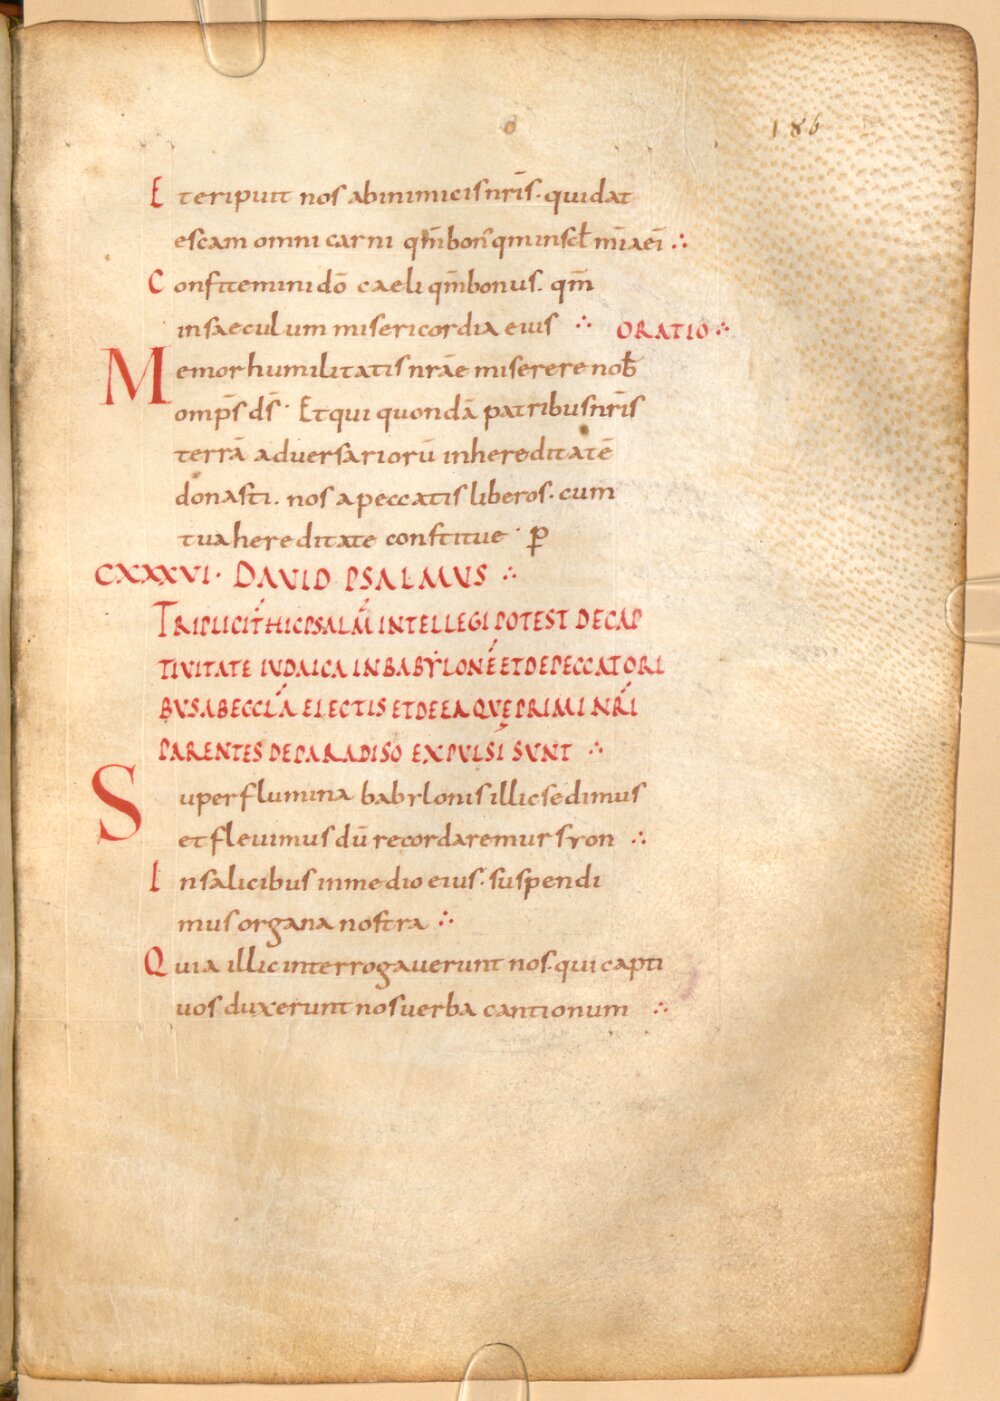 186
Et eripuit nos ab inimicis nr̄is · qui dat
escam omni carni qm̄ bon' qm in scl̄ mīa eī ∴
Confitemini dō caeli qm̄ bonus . qm̄
in saeculum misericordia eius ∴ ORATIO ∴
Memor humilitatis nrāe miserere nob̄
omp̄s ds̄ · Et qui quondā patribus nr̄is
terrā adversariorū in hereditatē
donasti . nos a peccatis liberos · cum
tua hereditate constitue · p̄
CXXXVI · DAVID PSALMUS ∴
TRIPLICIT̄ HIC PSALM̄ INTELLEGI POTEST DE CAP
TIVITATE IUDAICA IN BABYLONE ET DE PECCATORI
BUS AB ECCLA ELECTIS ET DE EA QUE PRIMI NRI
PARENTES DE PARADISO EXPULSI SUNT ∴
Super flumina babylonis illic sedimus
et flevimus dū recordaremur syon ∴
In salicibus in medio eius · suspendi
mus organa nostra ∴
Quia illic interrogaverunt nos · qui capti
vos duxerunt nos verba cantionum ∴